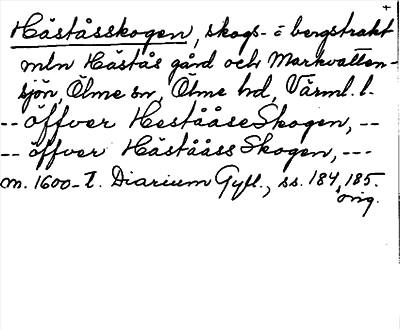 +
Håståsskogen, skogs- o bergstrakt
mln Håstås gård och Markvatten-
sjön, Ölme sn, Ölme hd, Värml. l.
-- öffver HestååseSkogen, --
-- öffver HåstååsSkogen, ---
m. 1600-t. Diarium Gyll., ss. 184, 185.
orig.